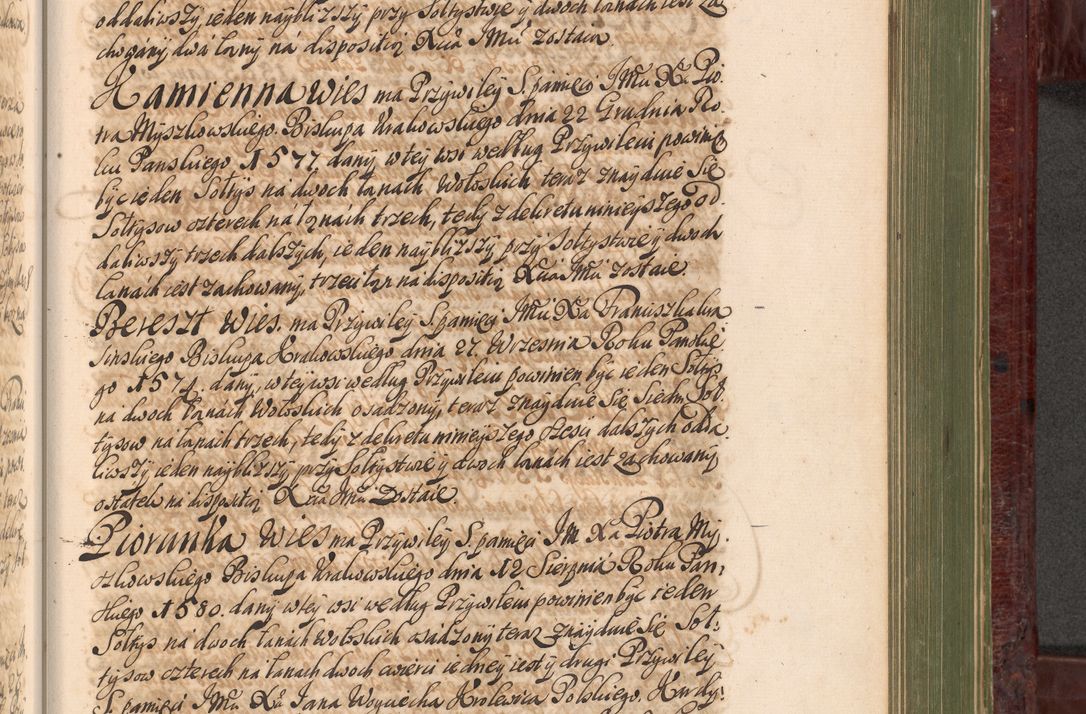 oddaliwszy, ieden naybliższy przy Sołtystwie y dwoch łanach iest za
chowany, dwa łany na dispositią Xcia JMci zostaią.
Kamienna Wies ma Przywiley S. pamięci JMci Xa Pio
tra Myszkowskiego Biskupa Krakowskiego dnia 22 Grudnia Ro
ku Panskiego 1577. dany, w tey wsi według Przywileiu powinien
być ieden Sołtys na dwoch łanach Wołoskich, teraz znayduie się
Sołtysow czterech na łanach trzech, tedy z dekretu ninieyszego od
daliwszy trzech dalszych, ieden naybliższy przy Sołtystwie y dwoch
łanach iest zachowany, trzeci łan na dispositią Xcia JMci zostaie.
Bereszt Wies. ma Przywiley S. pamięci JMci Xa Franciszka Kra
sinskiego Biskupa Krakowskiego dnia 27. Wrzesnia Roku Panskie
go 1574. dany, w tey wsi według Przywileiu powinien być ieden Sołtys
na dwoch łanach Wołoskich osadzony, teraz znayduie się siedm Soł.
tysow na łanach trzech, tedy z dekretu ninieyszego szesci dalszych odda
liwszy ieden naybliższy przy Sołtystwie y dwoch łanach iest zachowany
ostatek na dispositią Xcia JMci zostaie.
Piorunka Wies ma Przywiley S. pamięci JM Xa Piotra My
szkowskiego Biskupa Krakowskiego dnia 12 Sierpnia Roku Pan
skiego 1580. dany w tey wsi według Przywileiu powinien być ieden
Sołtys na dwoch łanach Wołoskich osadzony teraz znayduie się Soł:
tysow czterech na łanach dwoch cwierci iedney iest y drugi Przywiley
S. pamięci JMci Xa Jana Woyciecha Krolewica Polskiego. Kardy: